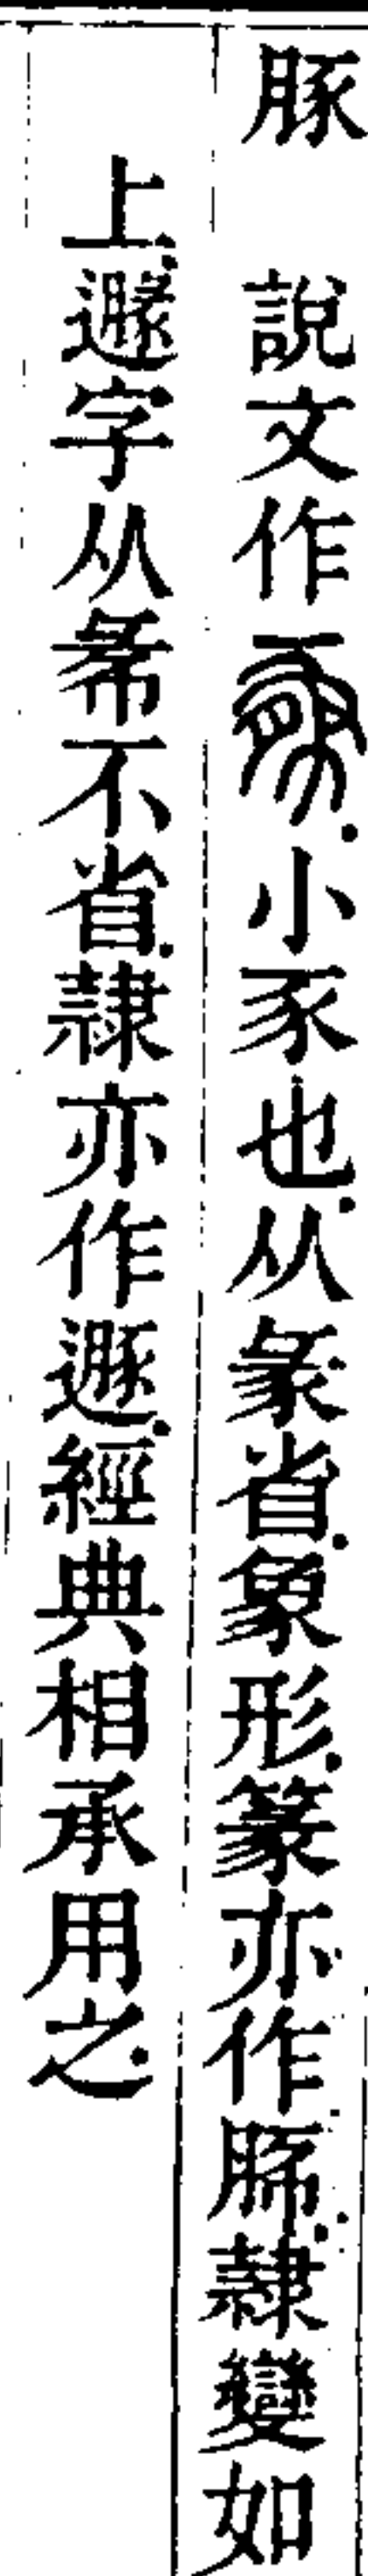 豚 說文作𢑓.小豕也.从彖省.象形.篆亦作豚.隸變如
上.遯字从㣇不省.隸亦作遯.經典相承用之.